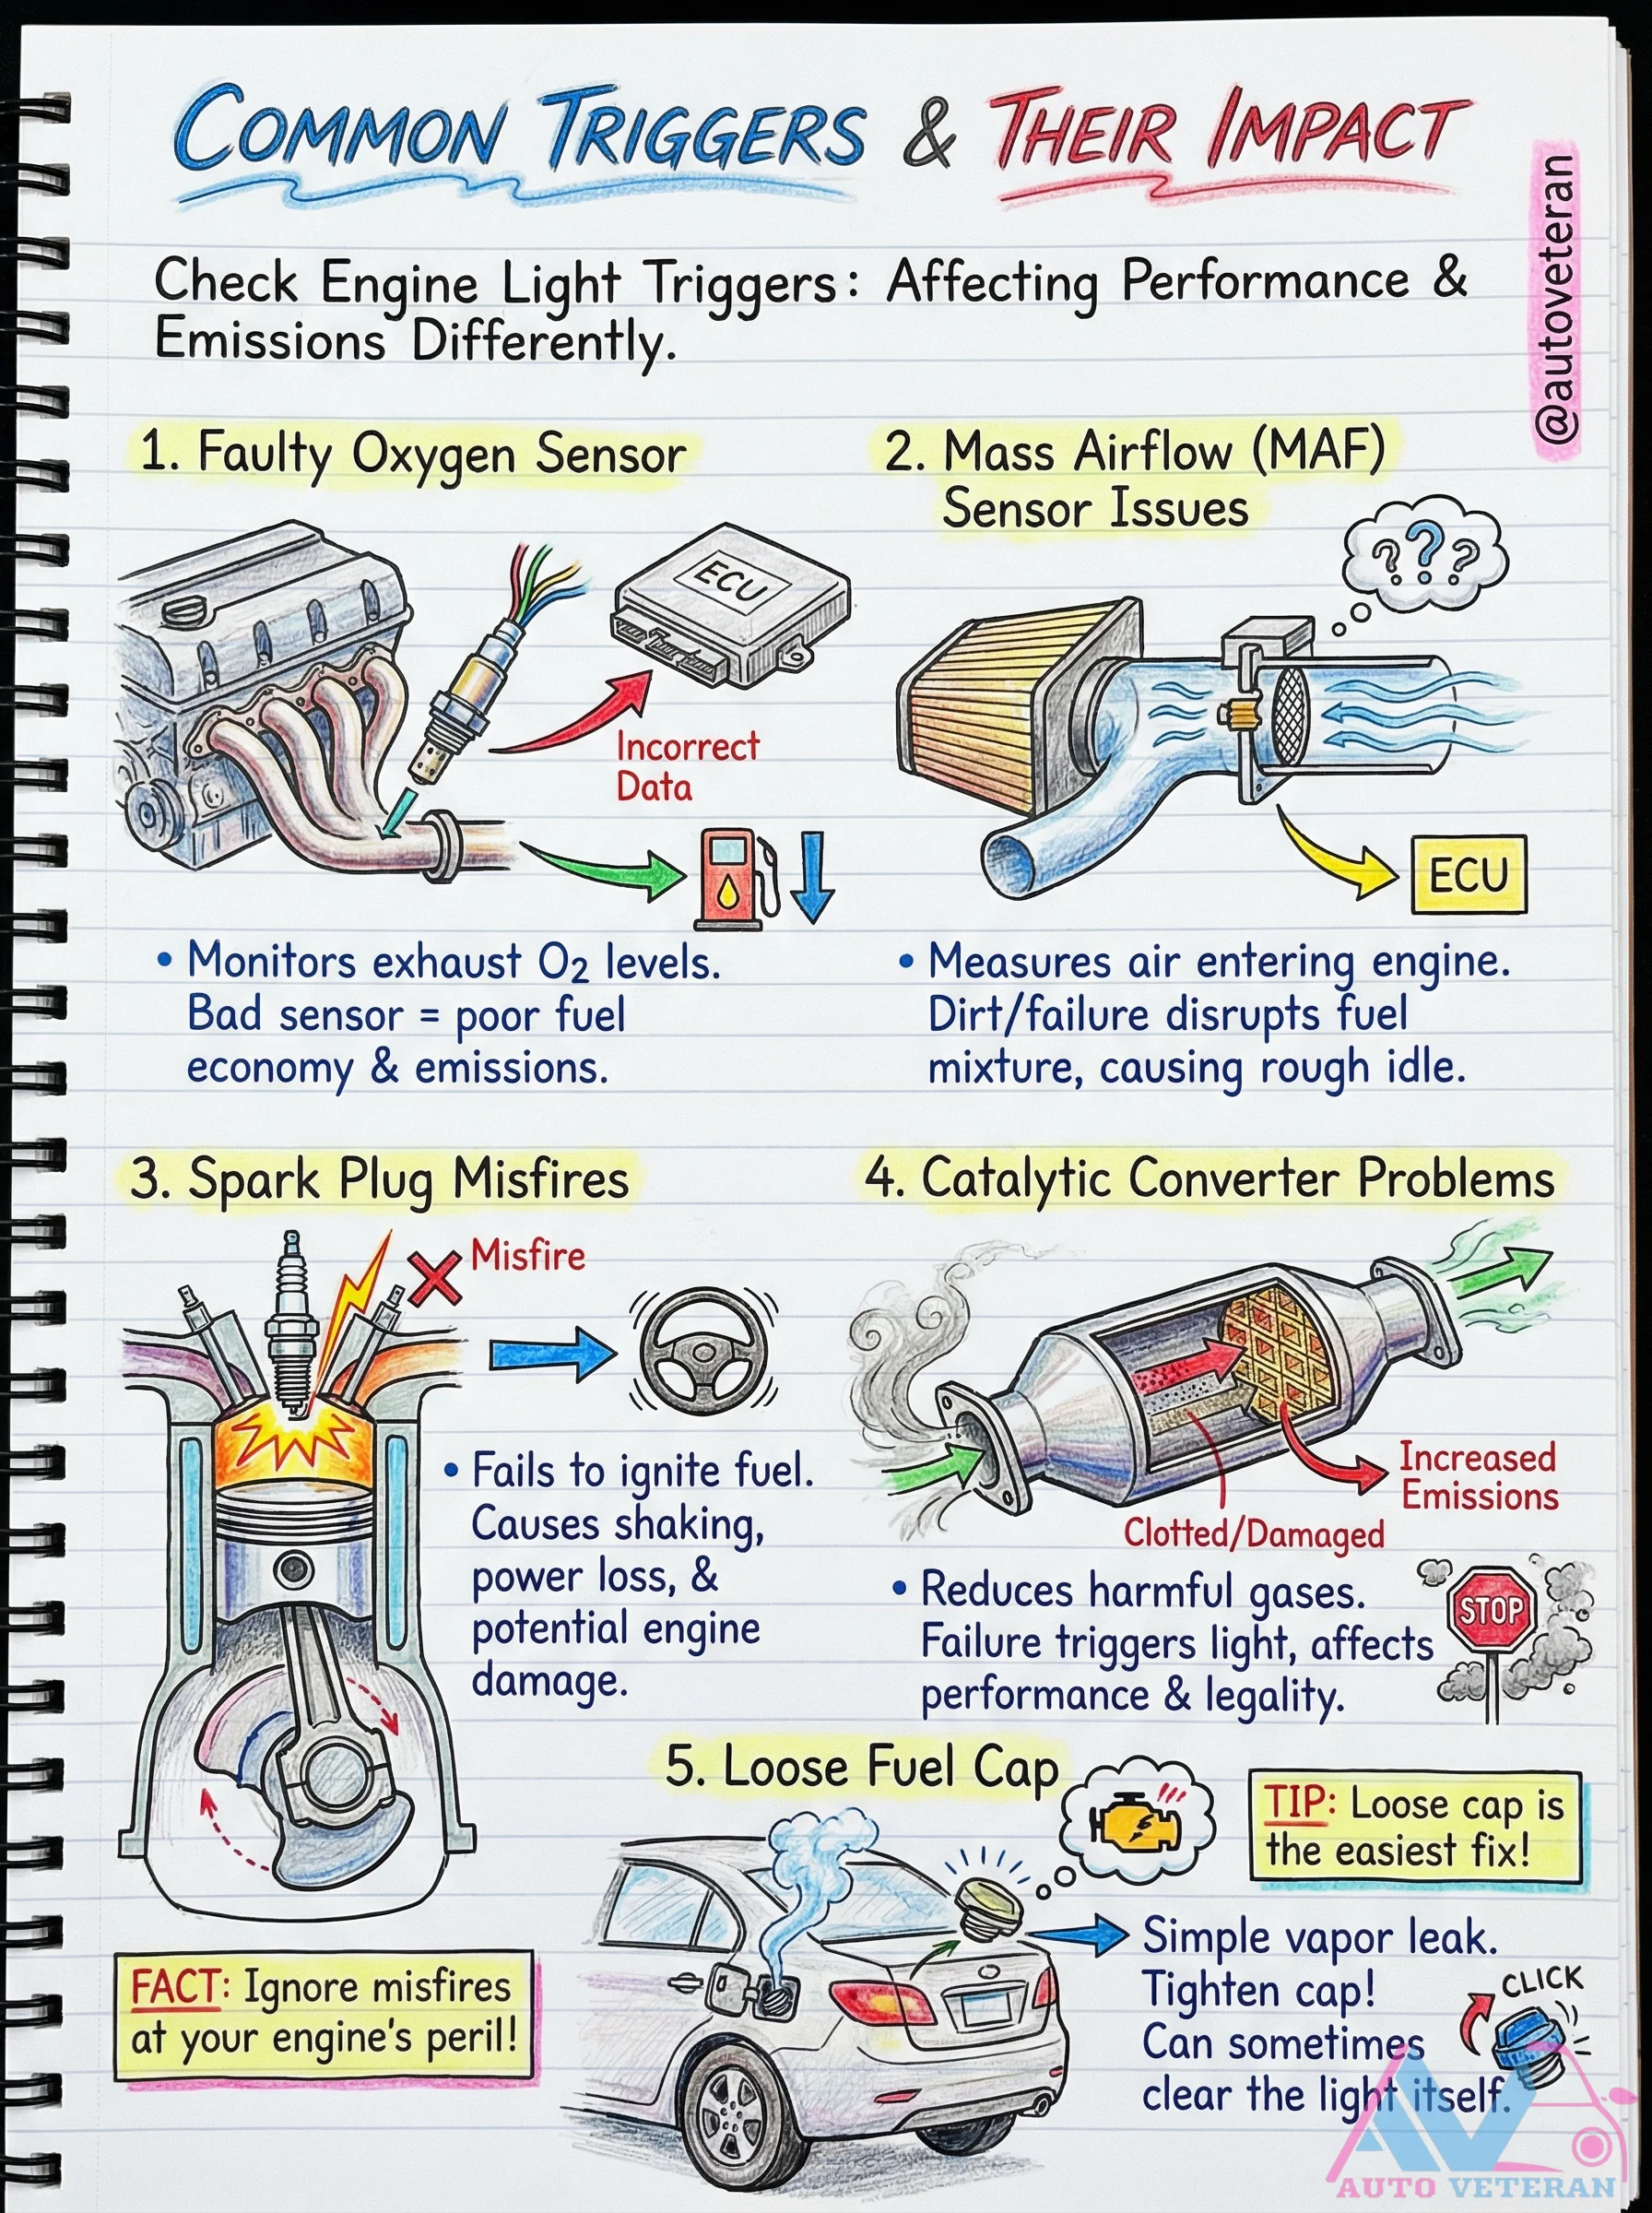 COMMON TRIGGERS & THEIR IMPACT
@autoveteran
Check Engine Light Triggers: Affecting Performance &
Emissions Differently.
1. Faulty Oxygen Sensor
ECU
Incorrect
Data
• Monitors exhaust O₂ levels.
Bad sensor = poor fuel
economy & emissions.
2. Mass Airflow (MAF)
Sensor Issues
???
ECU
• Measures air entering engine.
Dirt/failure disrupts fuel
mixture, causing rough idle.
3. Spark Plug Misfires
Misfire
• Fails to ignite fuel.
Causes shaking,
power loss, &
potential engine
damage.
FACT: Ignore misfires
at your engine's peril!
4. Catalytic Converter Problems
Increased
Emissions
Clotted/Damaged
• Reduces harmful gases.
Failure triggers light, affects
performance & legality.
STOP
5. Loose Fuel Cap
TIP: Loose cap is
the easiest fix!
Simple vapor leak.
Tighten cap!
Can sometimes
clear the light itself.
CLICK
AV
AUTO VETERAN